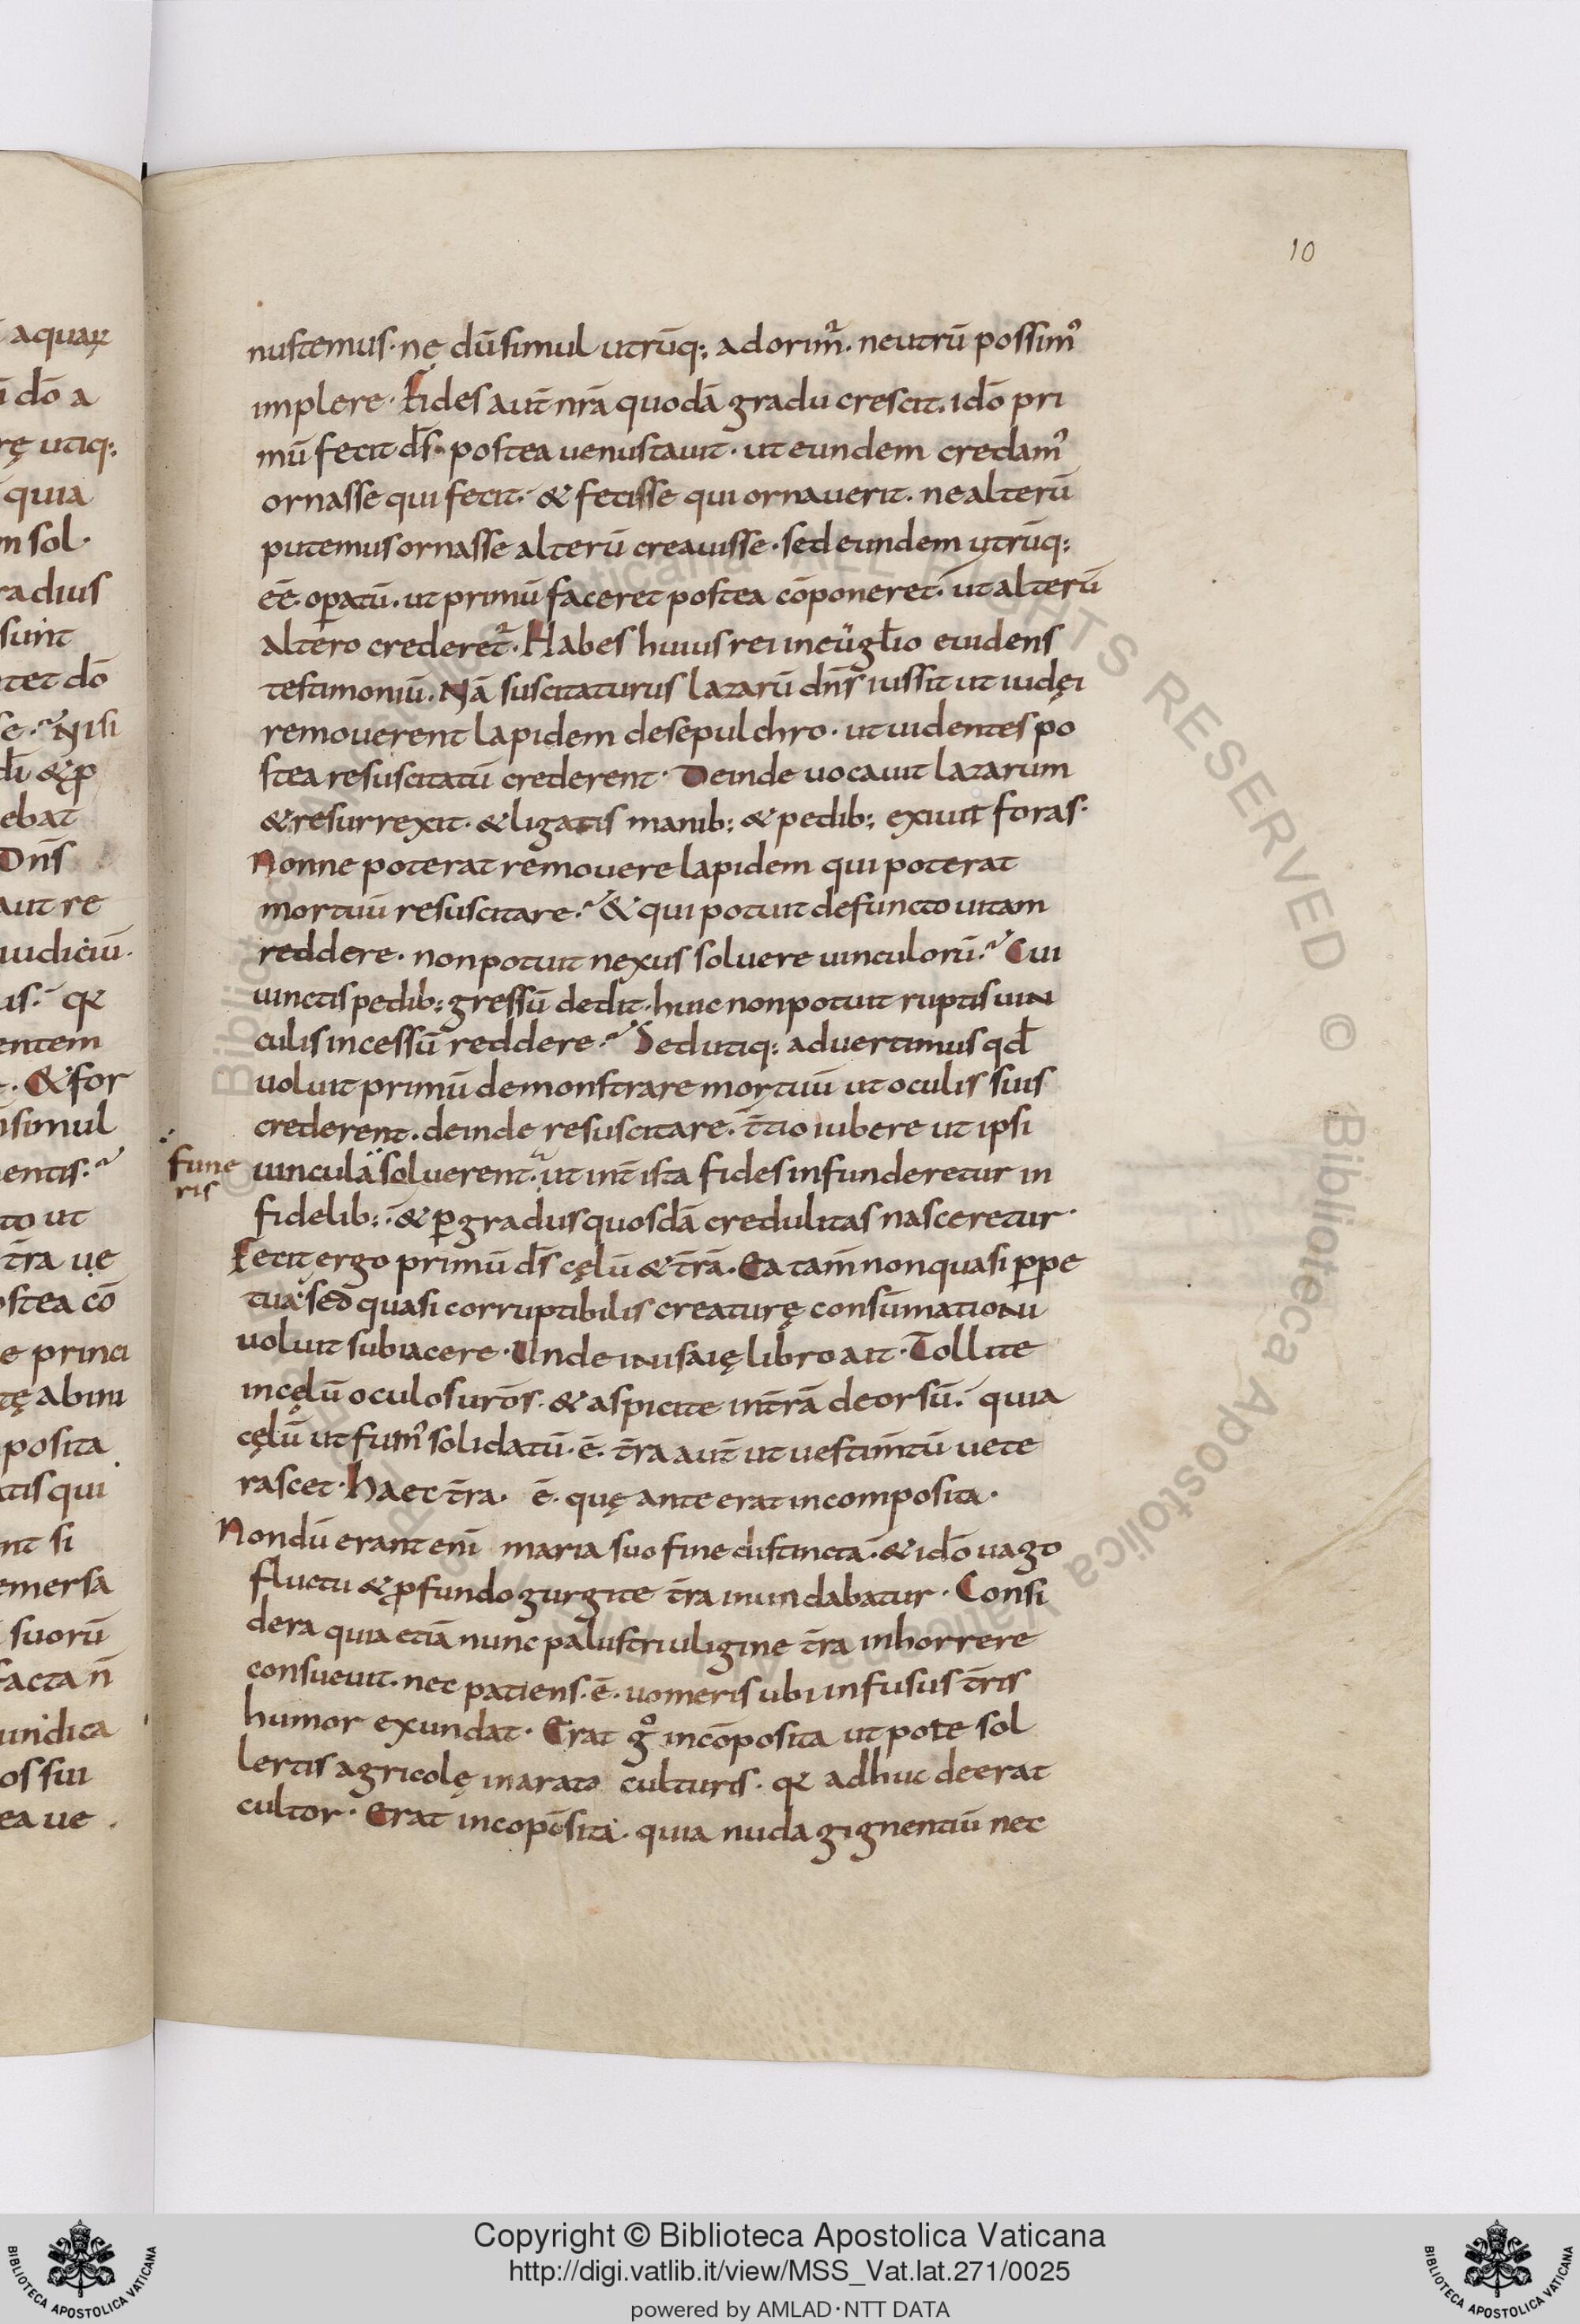 10
nustemus· nę dū simul utrūq; adorim̄· neutrū possim᾽
implere· Fides aūt nrā quodā gradu crescit· idō pri
mū fecit d̄s· postea uenustauit· ut eundem credam᾽
ornasse qui fecit· & fecisse qui ornauerit· ne alterū
putemus ornasse alterū creauisse· sed eundem utrūq;
eē· oꝑatū· ut primū faceret postea cōponeret· ut alterū
altero crederet᾽· Habes huius rei in eūgl̄io euidens
testimoniū· Nā suscitaturus lazarū dn̄s iussit ut iudęi
remouerent lapidem de sepulchro· ut uidentes po
stea resuscitatū crederent· Deinde uocauit lazarum
& resurrexit· & ligatis manib; & pedib; exiuit foras·
Nonne poterat remouere lapidem qui poterat
mortuū resuscitare? & qui potuit defuncto uitam
reddere· non potuit nexus soluere uinculorū? Cui
uinctis pedib; gressū dedit· huic non potuit ruptis uin
culis incessū reddere? Sed utiq; aduertimus qd̄
uoluit primū demonstrare mortuū ut oculis suis
crederent· deinde resuscitare· t̄tio iubere ut ipsi
fune
ris
uincula soluerent· ut int̄ ista fides infunderetur in
fidelib;· & ꝑ gradus quosdā credulitas nasceretur·
Fecit ergo primū d̄s cęlū & t̄rā· Ea tam̄ non quasi ꝑpe
tua· sed quasi corruptibilis creaturę consūmationi
uoluit subiacere· Unde in usaię libro ait· Tollite
in cęlū oculos ur̄os· & aspicite in t̄rā deorsū· quia
cęlū ut fum᾽ solidatū· ē· t̄ra aūt ut uestim̄tū uete
rascet· Haec t̄ra· ē· quę ante erat incomposita·
Nondū erant eni᷃ maria suo fine distincta· & idō uago
fluctu & ꝓfundo gurgite t̄ra inundabatur· Consi
dera quia etiā nunc palustri uligine t̄ra inhorrere
consueuit· nec patiens· ē· uomeris ubi infusus t̄ris
humor exundat· Erat gͦ incōposita ut pote sol
lertis agricolę inarato culturis· qꝛ adhuc deerat
cultor· Erat incopōsita· quia nuda gignentiū nec
Copyright © Biblioteca Apostolica Vaticana
http://digi.vatlib.it/view/MSS_Vat.lat.271/0025
powered by AMLAD·NTT DATA